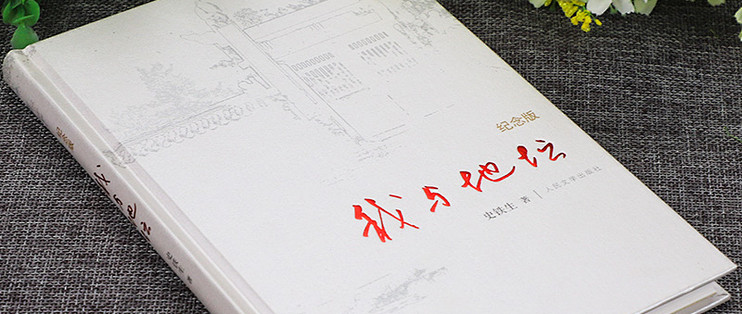 纪念版
我与地坛
史铁生 著 人民文学出版社
纪念版
我与地坛
史铁生 著